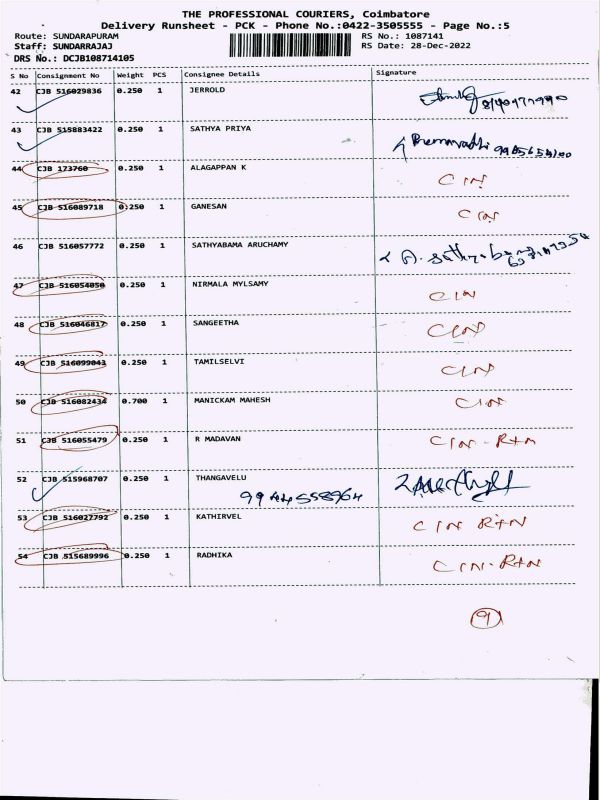 THE PROFESSIONAL COURIERS, Coimbatore
Delivery Runsheet - PCK - Phone No.:0422-3505555 - Page No.:5
Route: SUNDARAPURAM RS No.: 1087141
Staff: SUNDARRAJAJ RS Date: 28-Dec-2022
DRS No.: DCJB108714105
S No Consignment No Weight PCS Consignee Details Signature
42 CJB 516029836 0.250 1 JERROLD
43 CJB 515883422 0.250 1 SATHYA PRIYA
44 CJB 173760 0.250 1 ALAGAPPAN K CIN
45 CJB 516089718 0.250 1 GANESAN CIN
46 CJB 516057772 0.250 1 SATHYABAMA ARUCHAMY
47 CJB 516054050 0.250 1 NIRMALA MYLSAMY CIN
48 CJB 516046817 0.250 1 SANGEETHA CIN
49 CJB 516099043 0.250 1 TAMILSELVI CIN
50 CJB 516082434 0.700 1 MANICKAM MAHESH CIN
51 CJB 516055479 0.250 1 R MADAVAN CIN-RTN
52 CJB 515968707 0.250 1 THANGAVELU
9944558964
53 CJB 516027792 0.250 1 KATHIRVEL CIN RTN
54 CJB 515689996 0.250 1 RADHIKA CIN-RTN
9